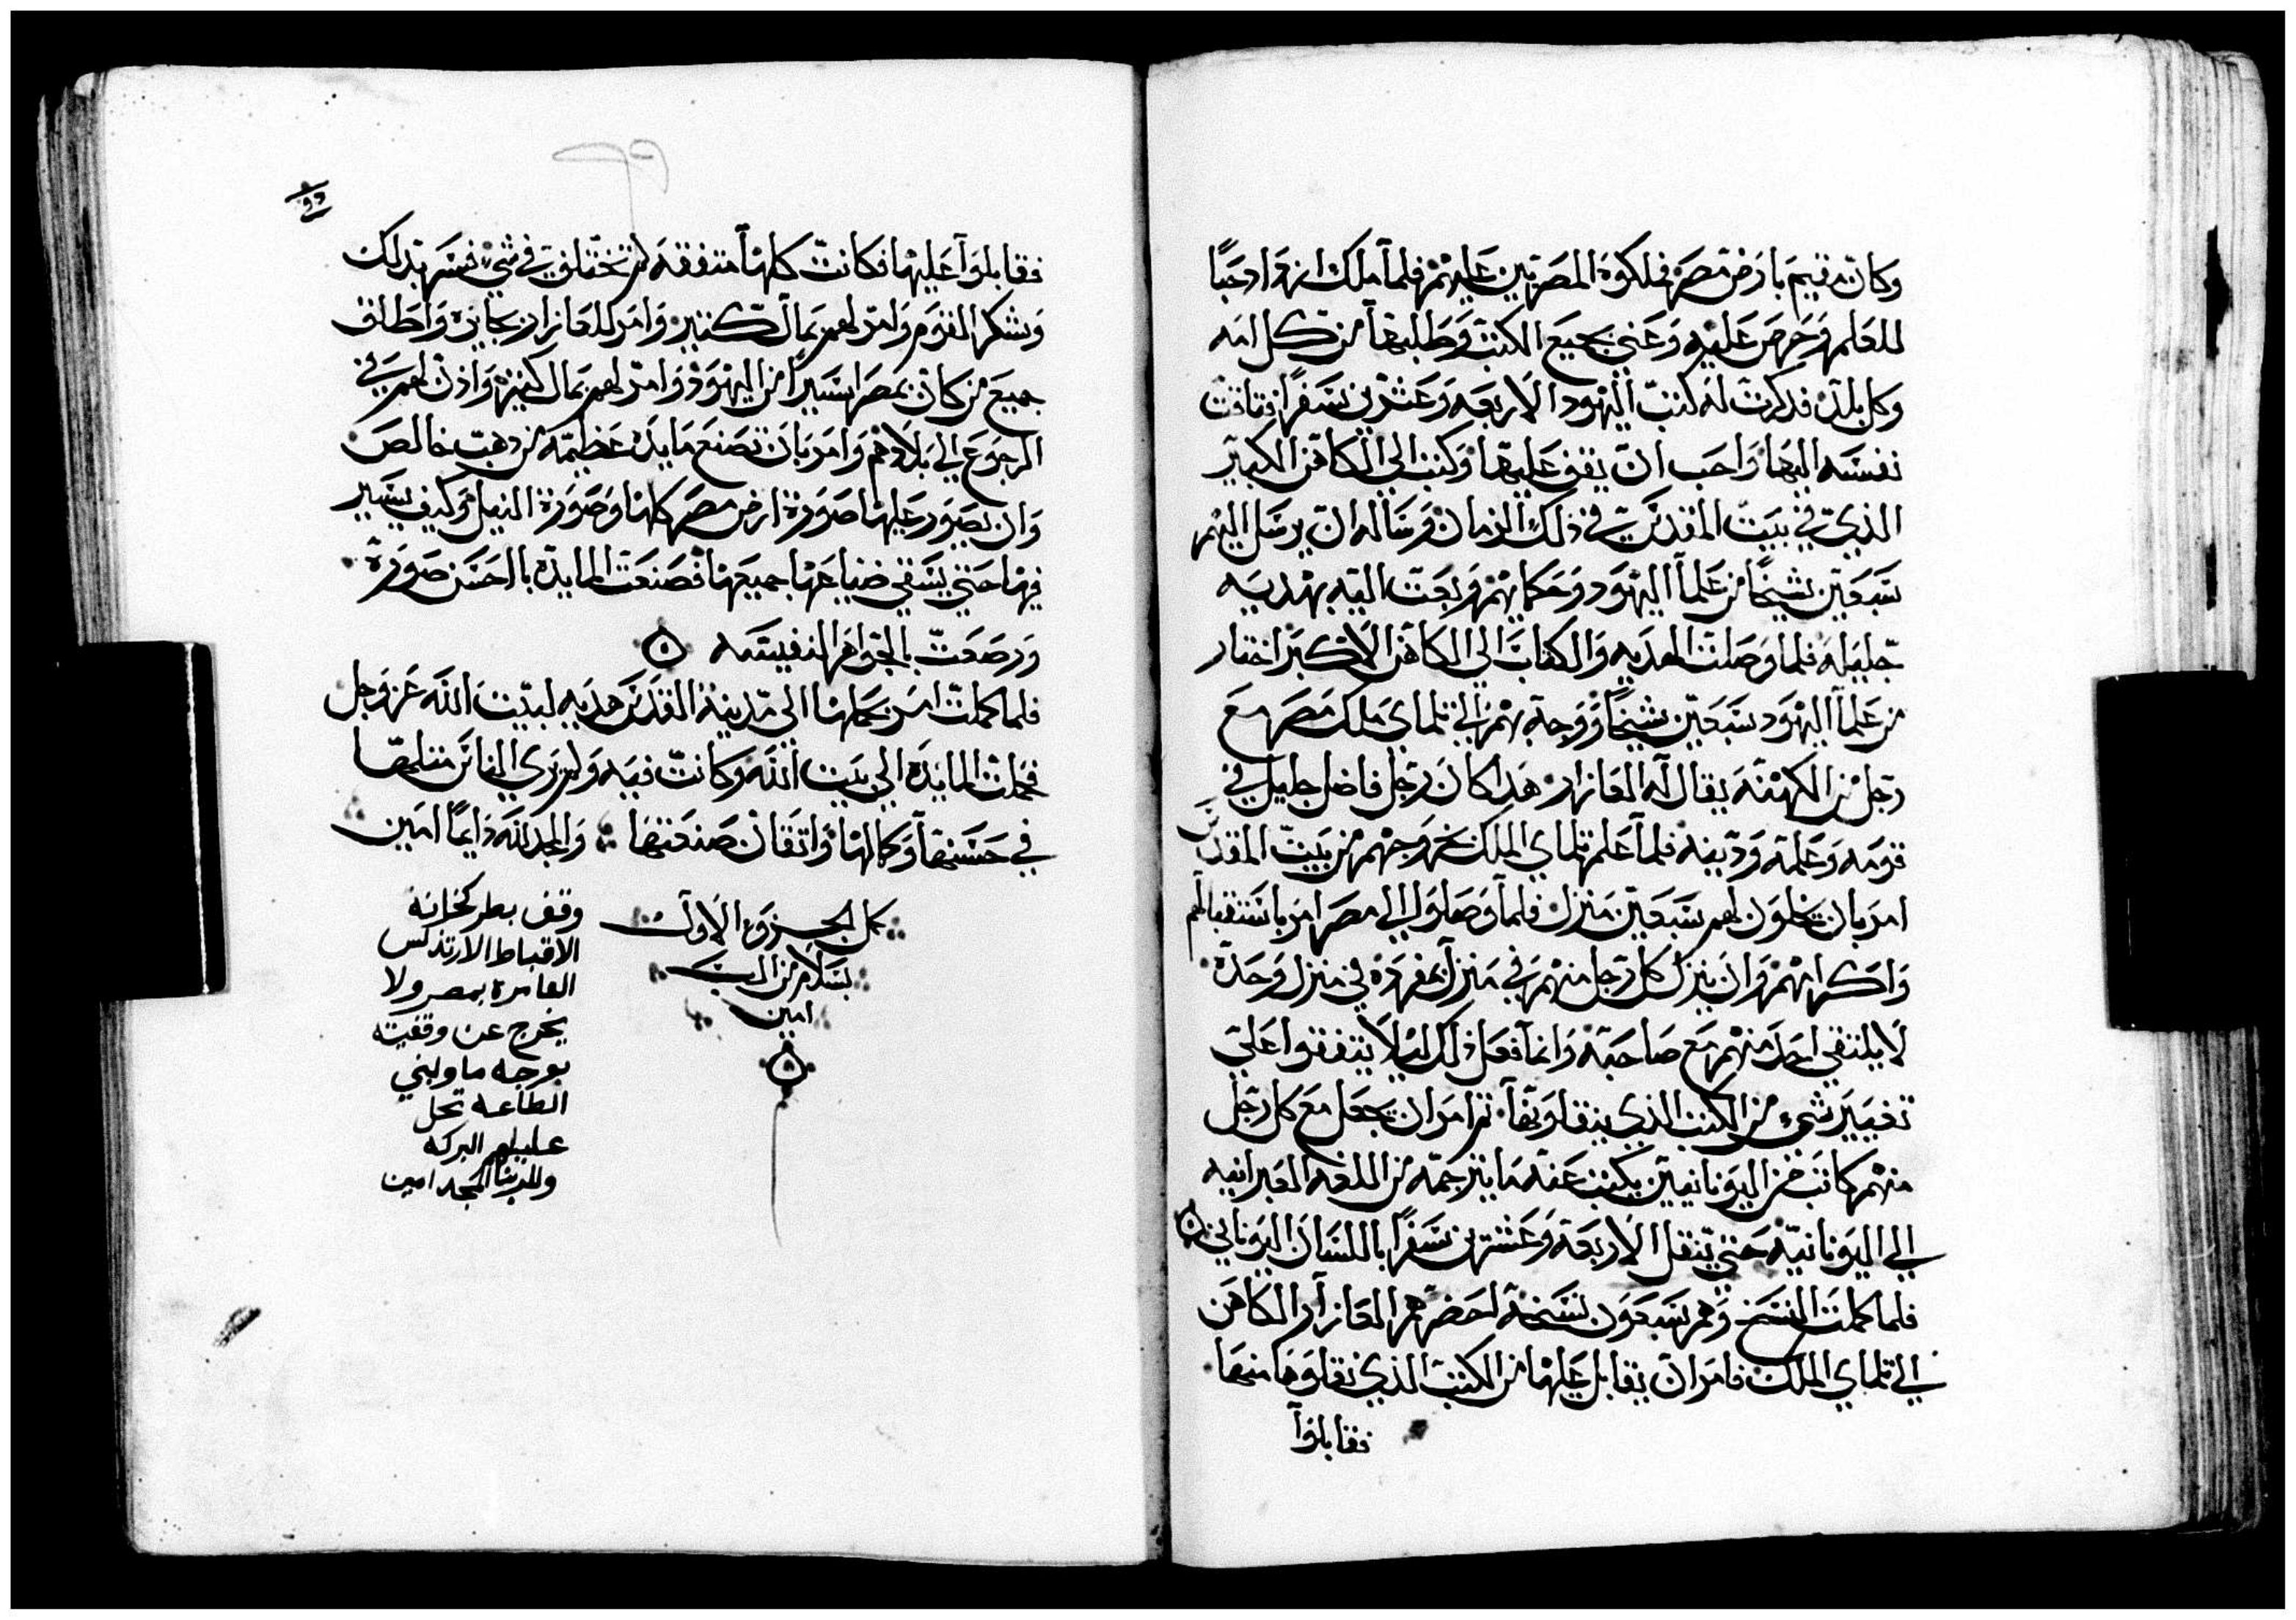 وكان مقيم بارض مصر فملكوه المصريين عليهم فلما ملك انه واد حبا
للعلم وحرص عليه وعني بجميع الكتب وطلبها من كل امه
وكل بلد فذكرت له كتب اليهود الاربعه وعشرين سفرا فتاقت
نفسه اليها واحب ان يقف عليها وكتب الي الكاهن الكبير
الذي في بيت المقدس في ذلك الزمان وساله ان يرسل اليهم
سبعين شيخا من علما اليهود وحكمايهم وبعت اليه بهديه
جليله فلما وصلت الهديه والكتاب الي الكاهن الاكبر اختار
من علما اليهود سبعين شيخا ووجه بهم الي تلماي ملك مصر مع
رجل من الكهنه يقال له العازار هدا كان رجل فاضل جليل في
قومه وعلمه ودينه فلما علم تلماي الملك بخروجهم من بيت المقدس
امر بان يخلون لهم سبعين منزل فلما وصلوا الي مصر امر باستقبالهم
واكرامهم وان ينزل كل رجل منهم في منزل بمفرده في منزل وحده
لا يلتقي احد منهم مع صاحبه وانما فعل ذلك ليلا يتفقوا علي
تغيير شيء من الكتب الذي ينقلونها ثم امر ان يجعل مع كل رجل
منهم كاتب من اليونانيين يكتب عنه ما يترجمه من اللغه العبرانيه
الي اليونانيه حتي تنقل الاربعه وعشرين سفرا باللسان اليوناني
فلما كملت النسخ وهم سبعون نسخة احضرهم العازار الكاهن
الي تلماي الملك فامر ان يقابل عليها من الكتب الذي نقلوها منها
فقابلوا
٩٩
فقابلوا عليها فكانت كلها متفقه لم تختلف في شي فسر بذلك
وشكر القوم وامر لهم بمال كتير وامر للعازار بجايزه واطلق
جميع من كان بمصر اسيرا من اليهود وامر لهم بمال كتير واذن لهم في
الرجوع الي بلادهم وامر بان تصنع مايده عظيمه من دهب خالص
وان يصور عليها صورة ارض مصر كلها وصورة النيل وكيف يسير
فيها حتي يسقي ضياعها جميعها فصنعت المايده باحسن صورة
ورصعت بالجواهر النفيسه
فلما كملت امر بحملها الي مدينة القدس هديه لبيت الله عز وجل
فحملت المايده الي بيت الله وكانت فيه ولم يري الناس متلها
في حسنها وكمالها واتقان صنعتها والمجد لله دايما امين
كمل الجزو الاول
بسلام من الرب
امين
وقف بطركخانة
الاقباط الارتدكس
العامرة بمصر ولا
يخرج عن وقفيته
بوجه ما ولبني
الطاعه تحل
عليهم البركه
ولربنا المجد امين